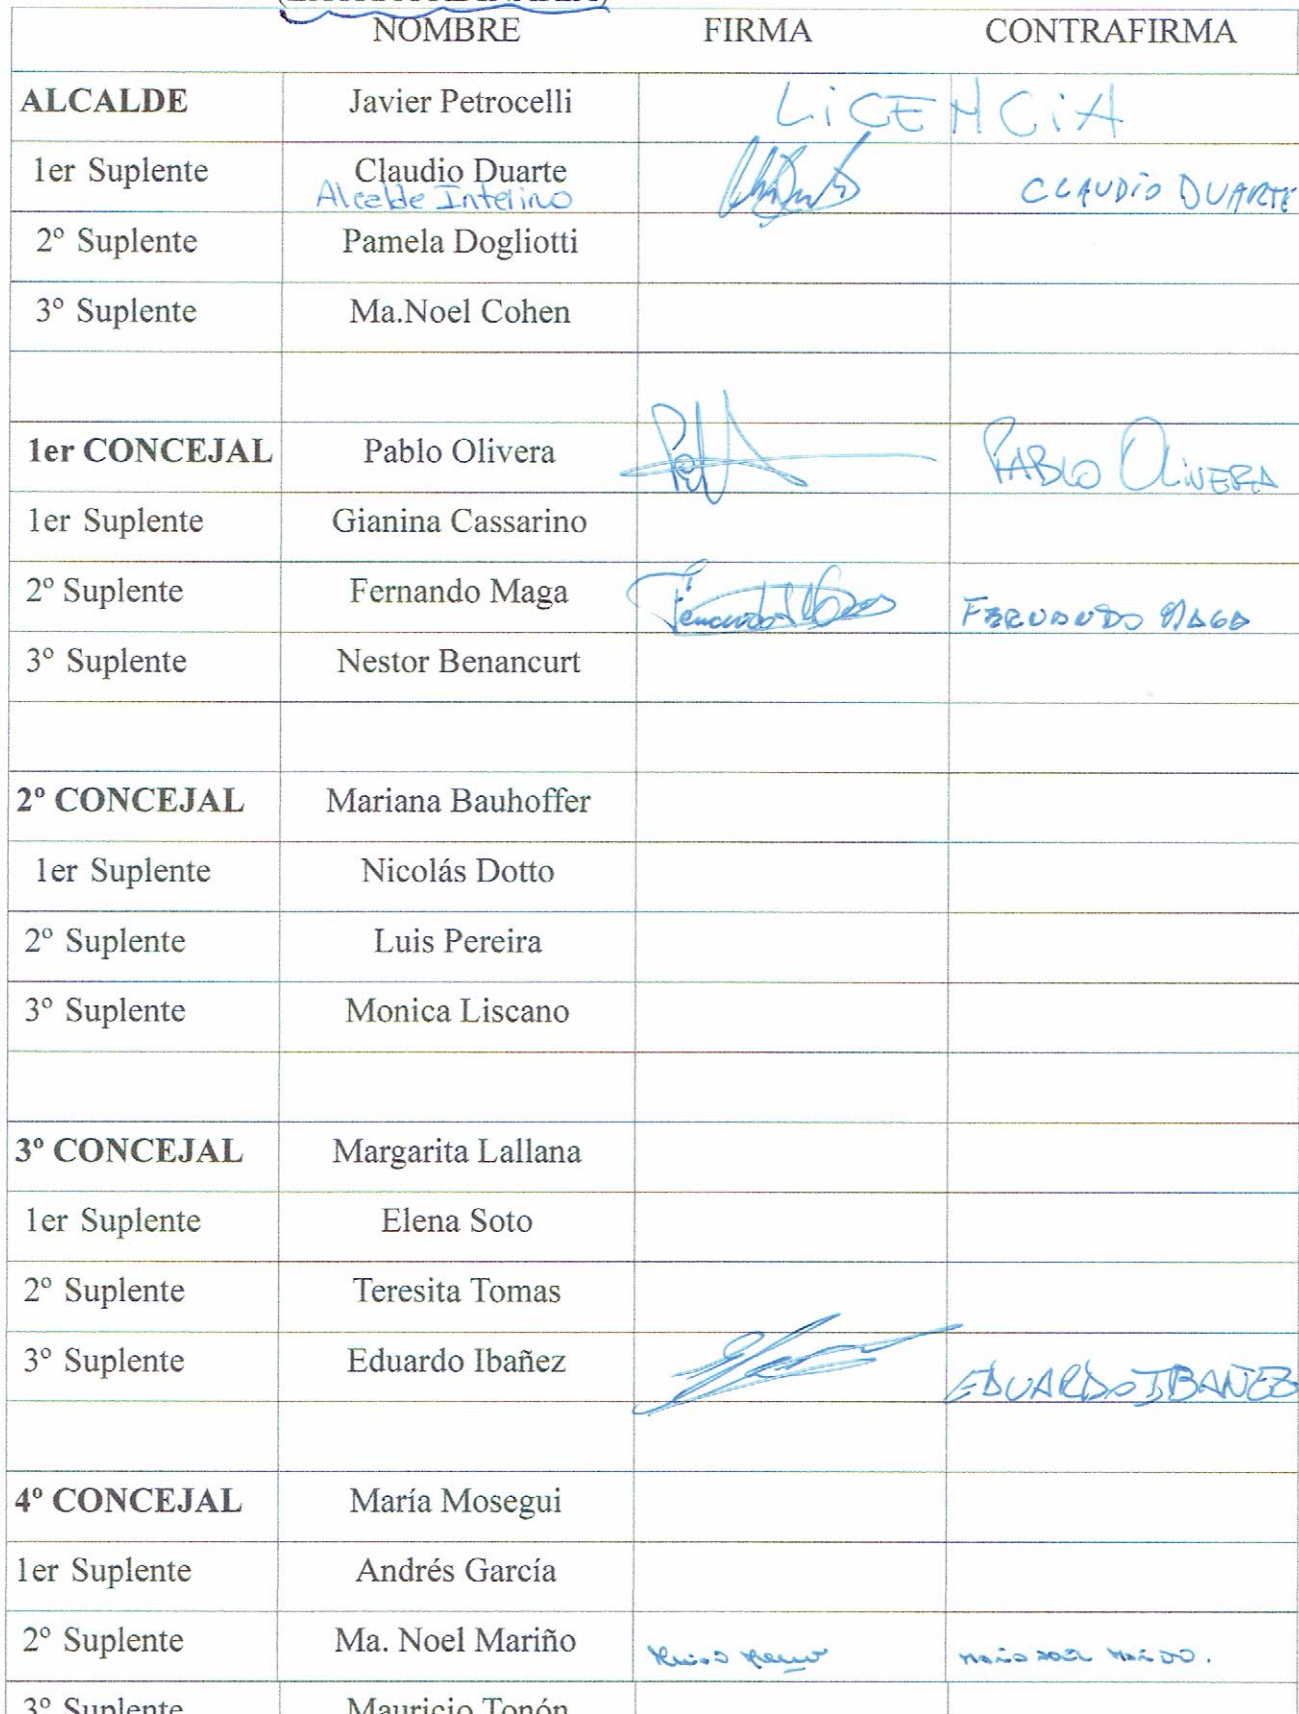 (EXTRAORDINARIA)
NOMBRE FIRMA CONTRAFIRMA
ALCALDE Javier Petrocelli LiCENCiA
1er Suplente Claudio Duarte CLAUDiO DUARTE
Alcalde Interino
2º Suplente Pamela Dogliotti
3º Suplente Ma.Noel Cohen
1er CONCEJAL Pablo Olivera PABLO OLiVERA
1er Suplente Gianina Cassarino
2º Suplente Fernando Maga FERNANDO MAGA
3º Suplente Nestor Benancurt
2º CONCEJAL Mariana Bauhoffer
1er Suplente Nicolás Dotto
2º Suplente Luis Pereira
3º Suplente Monica Liscano
3º CONCEJAL Margarita Lallana
1er Suplente Elena Soto
2º Suplente Teresita Tomas
3º Suplente Eduardo Ibañez EDUARDO IBAÑEZ
4º CONCEJAL María Mosegui
1er Suplente Andrés García
2º Suplente Ma. Noel Mariño
3º Suplente Mauricio Tonón